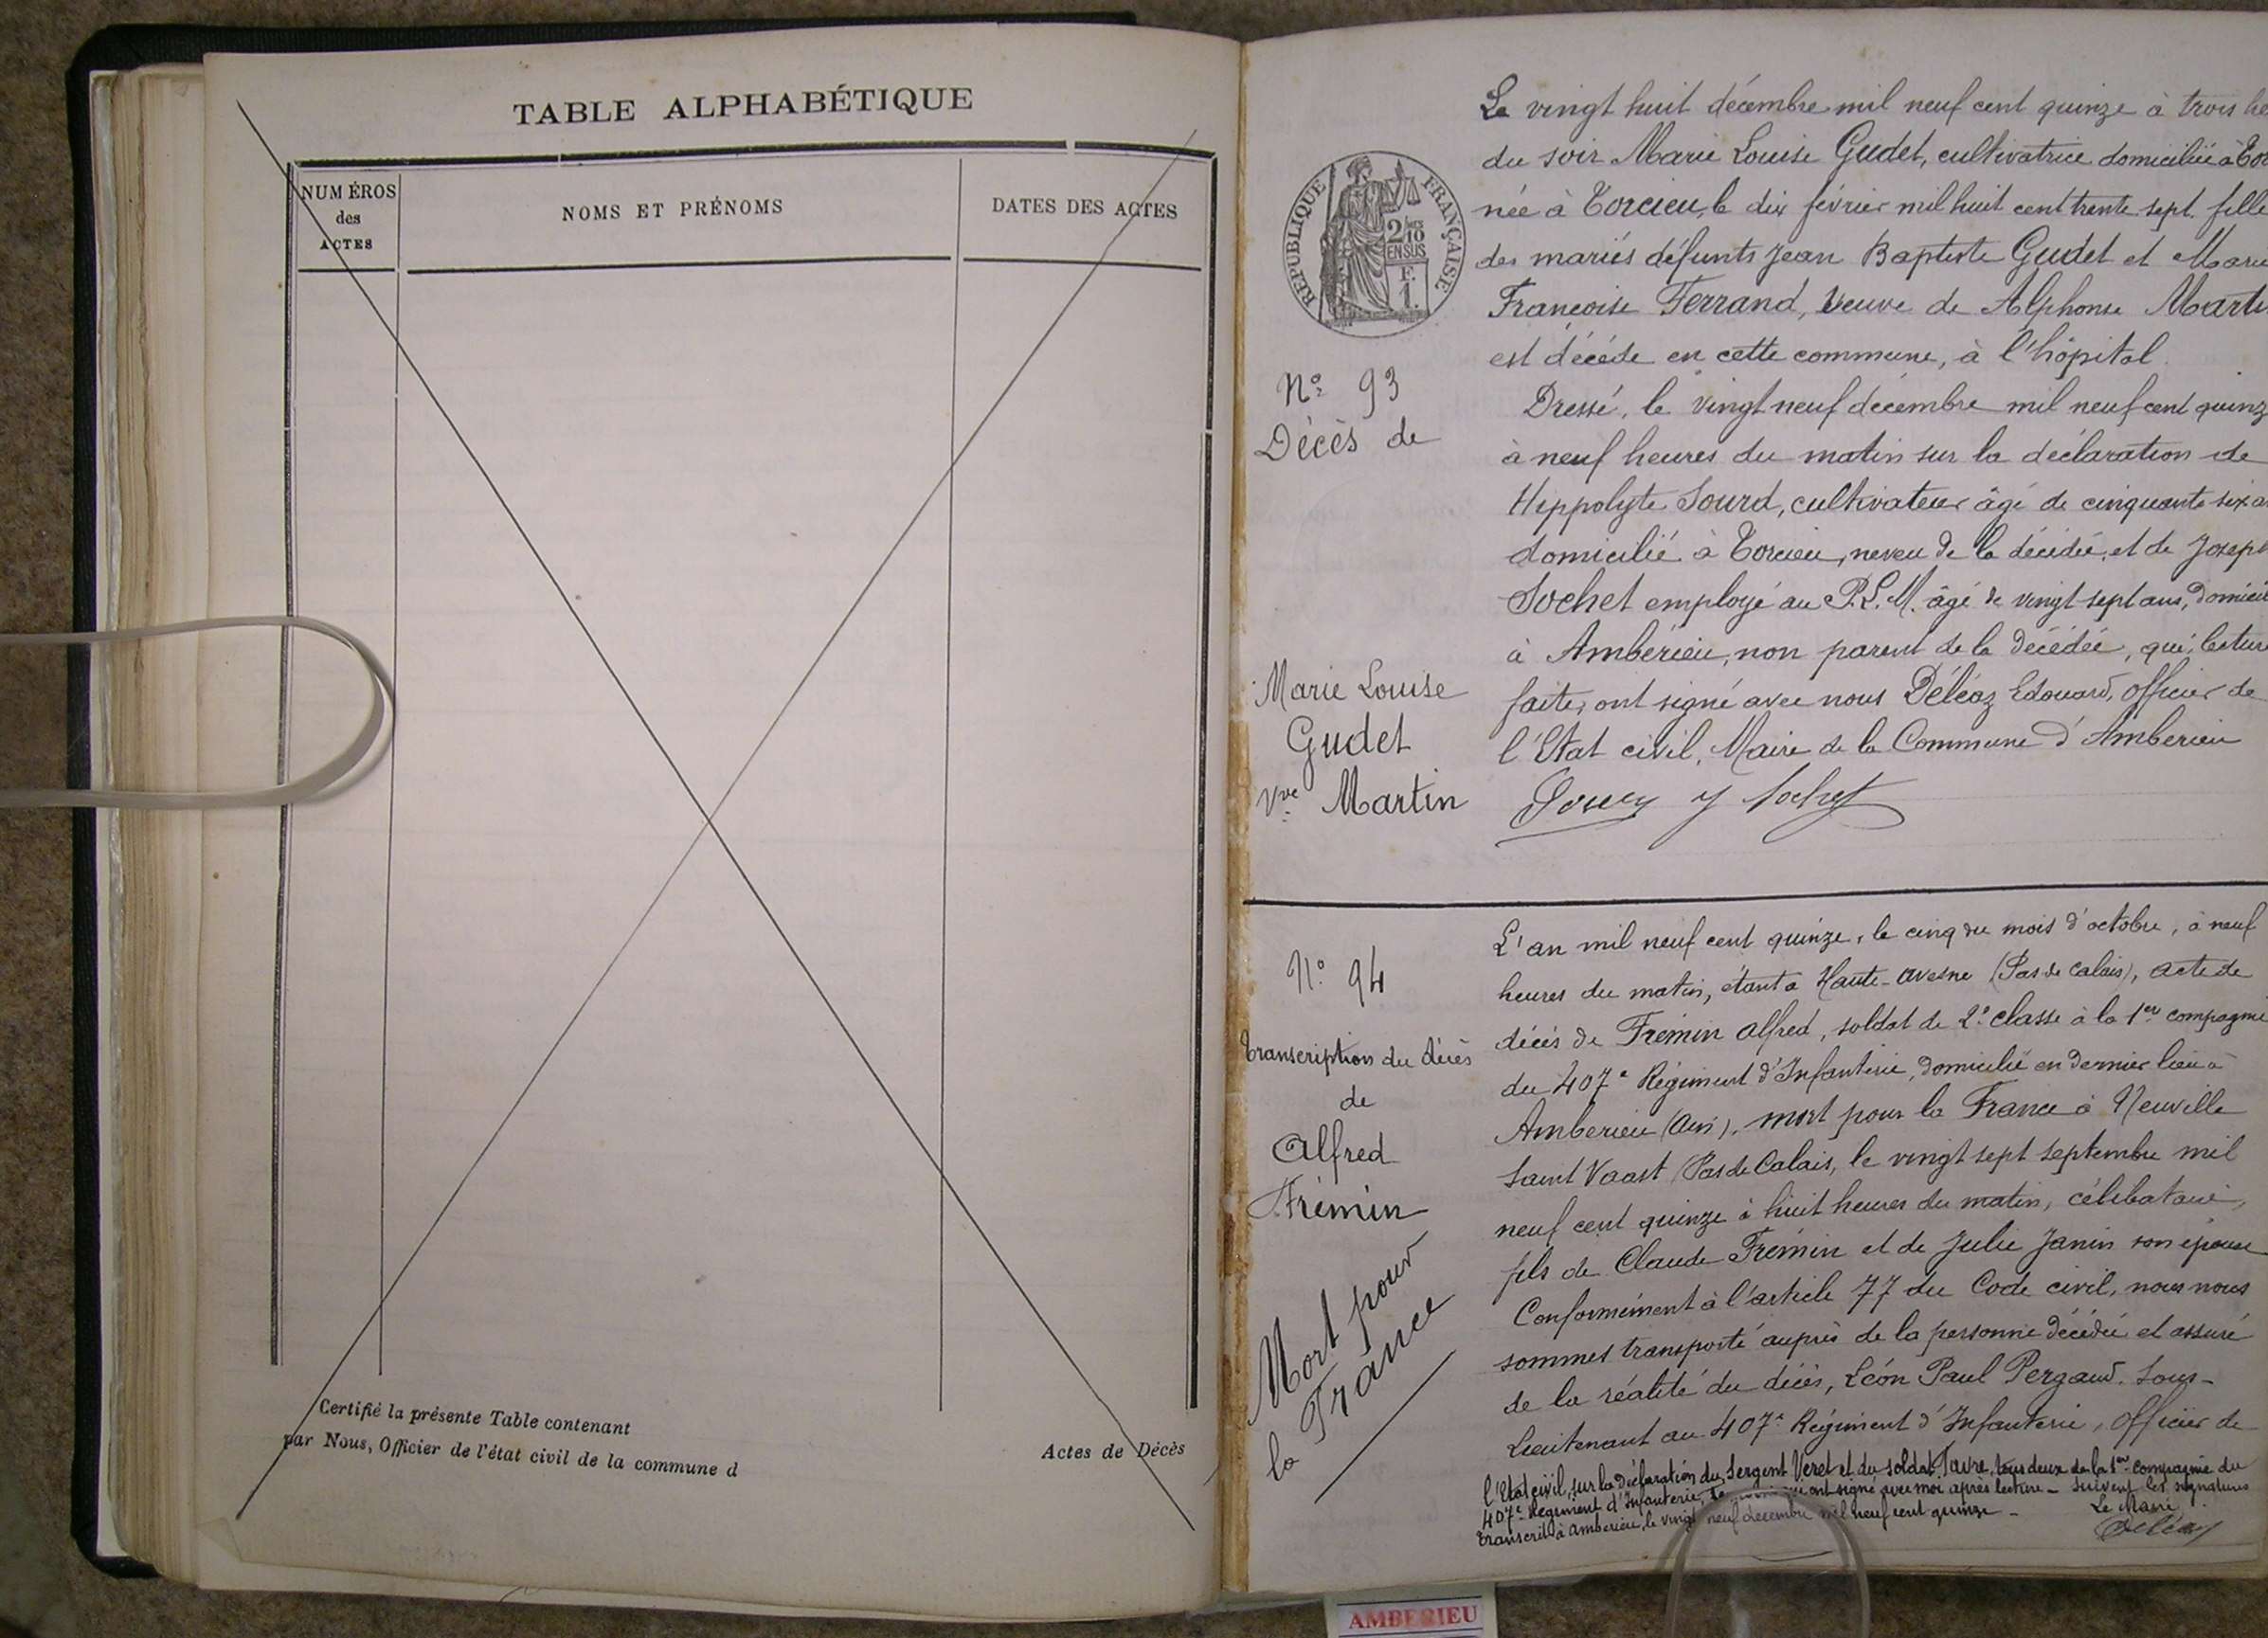 TABLE ALPHABÉTIQUE
NUMÉROS
des
ACTES
NOMS ET PRÉNOMS
DATES DES ACTES
Certifié la présente Table contenant
Actes de Décès
par Nous, Officier de l'état civil de la commune d
REPUBLIQUE FRANÇAISE
2/10
EN SUS
F.
1.
N° 93
Décès de
Marie Louise
Gudet
Vve Martin
Le vingt huit décembre mil neuf cent quinze à trois
du soir Marie Louise Gudet, cultivatrice domiciliée à
née à Torcieu, le dix février mil huit cent trente sept, fille
des mariés défunts Jean Baptiste Gudet et Marie
Françoise Ferrand, veuve de Alphonse
est décéde en cette commune, à l'hôpital.
Dressé, le vingt neuf décembre mil neuf cent quinz
à neuf heures du matin sur la déclaration de
Hippolyte Sourd, cultivateur âgé de cinquante six
domicilié à Torcieu, neveu de la décédée, et de Joseph
Sochet employé au P.L.M. âgé de vingt sept ans, domicil
à Ambérieu, non parent de la décédée, qui, lecture
faite, ont signé avec nous Déléaz Edouard, Officier de
l'Etat civil, Maire de la Commune d'Amberieu
J Sochet
N° 94
Transcription du décès
de
Alfred
Frémin
Mort pour
la France
L'an mil neuf cent quinze, le cinq du mois d'octobre, à neuf
heures du matin, étant à Haute-Avesne (Pas de Calais), acte de
décès de Frémin Alfred, soldat de 2e classe à la 1ere compagnie
du 407e Régiment d'Infanterie, domicilié en dernier lieu à
Amberieu (Ain), mort pour la France à Neuville
Saint Vaast (Pas de Calais, le vingt sept septembre mil
neuf cent quinze à huit heures du matin, célibataire,
fils de Claude Frémin et de Julie Janin son épouse
Conformément à l'article 77 du Code civil, nous nous
sommes transporté auprès de la personne décédée et assuré
de la réalité du décès, Léon Paul Pergaud. Sous-
Lieutenant au 407e Régiment d'Infanterie, Officier de
l'Etat civil, sur la déclaration du Sergent Veret et du soldat Favre, tous deux de la 1ere compagnie du
407e Régiment d'Infanterie, qui ont signé avec moi après lecture - Suivent les signatures
Transcrit à Amberieu, le vingt neuf decembre mil neuf cent quinze -
Le Maire
Deléaz
AMBERIEU